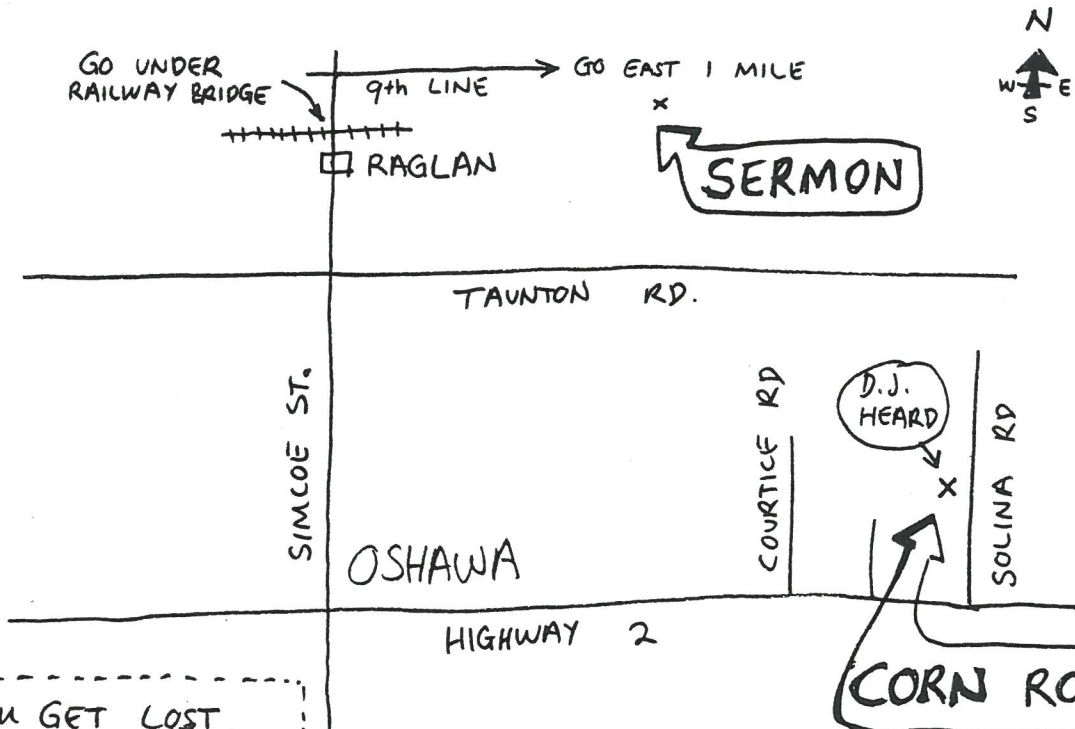 N
GO UNDER
RAILWAY BRIDGE
9th LINE
GO EAST 1 MILE
W E
S
RAGLAN
SERMON
TAUNTON RD.
SIMCOE ST.
COURTICE RD
D.J.
HEARD
SOLINA RD
OSHAWA
HIGHWAY 2
CORN RO
GET LOST